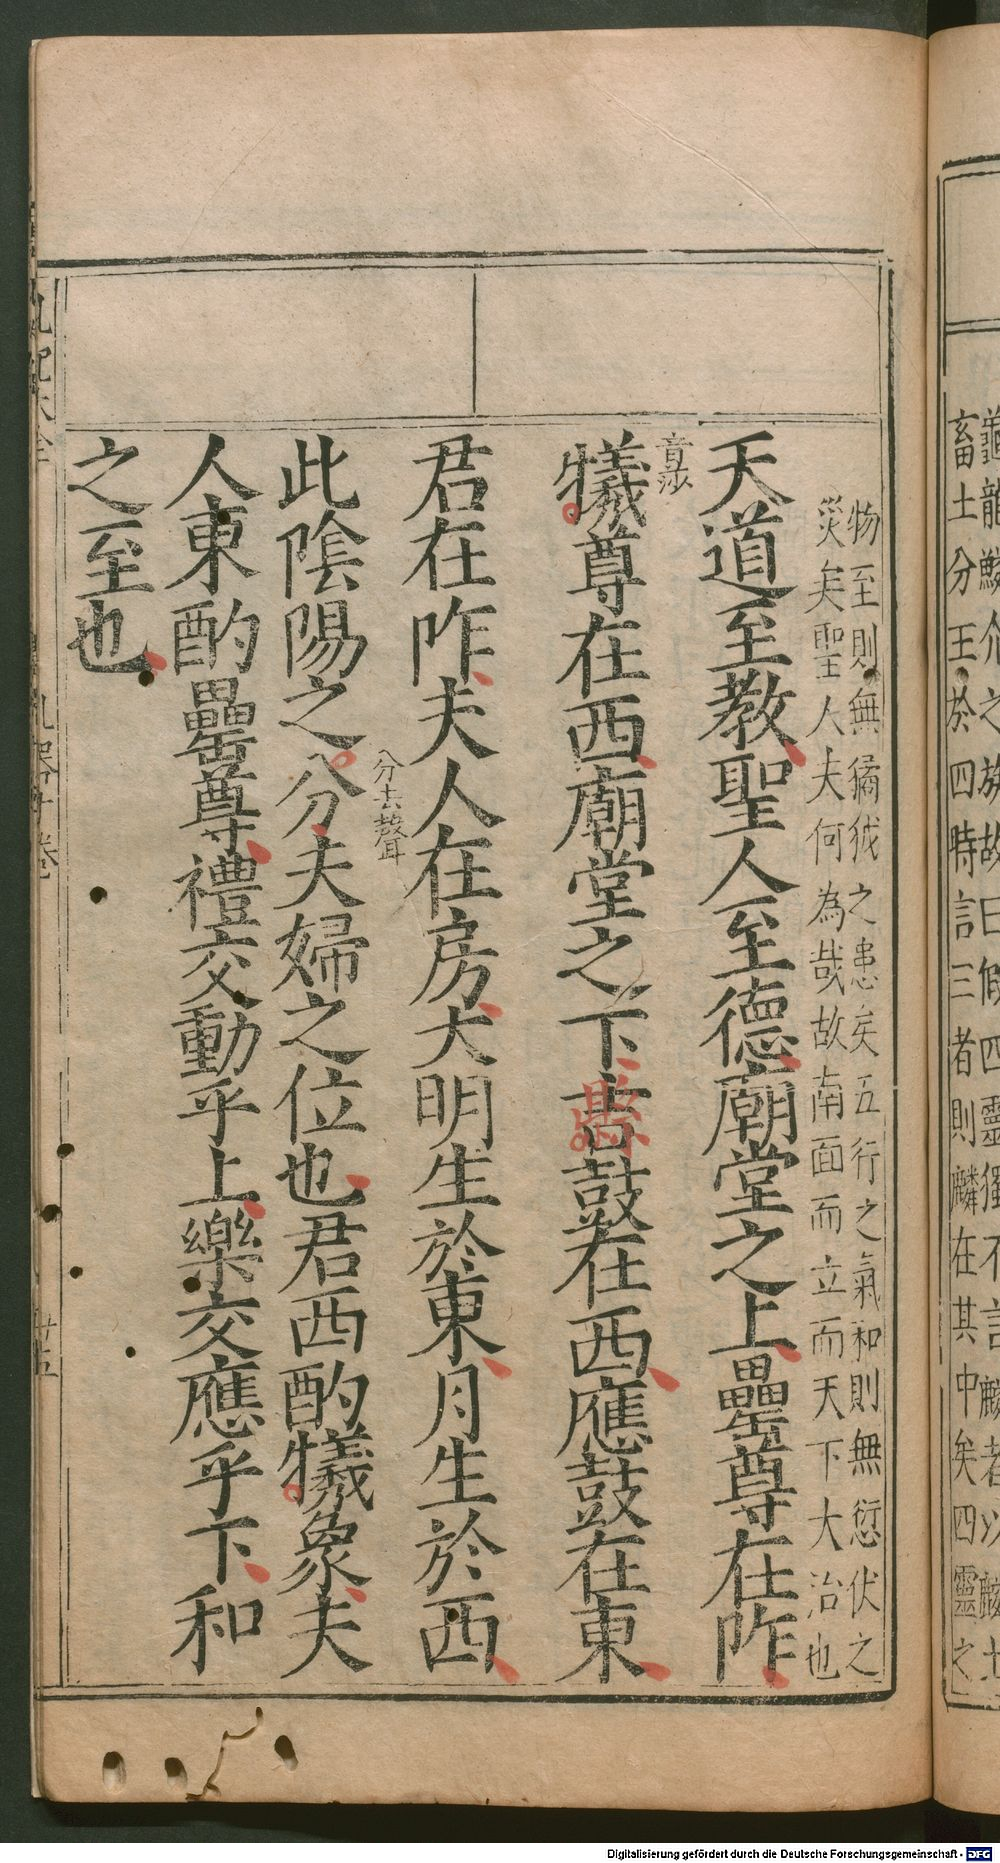 龜龍鱗介之族故曰假四靈獨不言麟者以麟土
畜土分王於四時言三者則麟在其中矣四靈之
物至則無獝狘之患矣五行之氣和則無愆伏之
災矣聖人夫何為哉故南面而立而天下大治也
天道至教聖人至德廟堂之上罍尊在阼
音莎
犧尊在西廟堂之下縣鼓在西應鼓在東
君在阼夫人在房大明生於東月生於西
分去聲
此陰陽之分夫婦之位也君西酌犧象夫
人東酌罍尊禮交動乎上樂交應乎下和
之至也
Digitalisierung gefördert durch die Deutsche Forschungsgemeinschaft - DFG